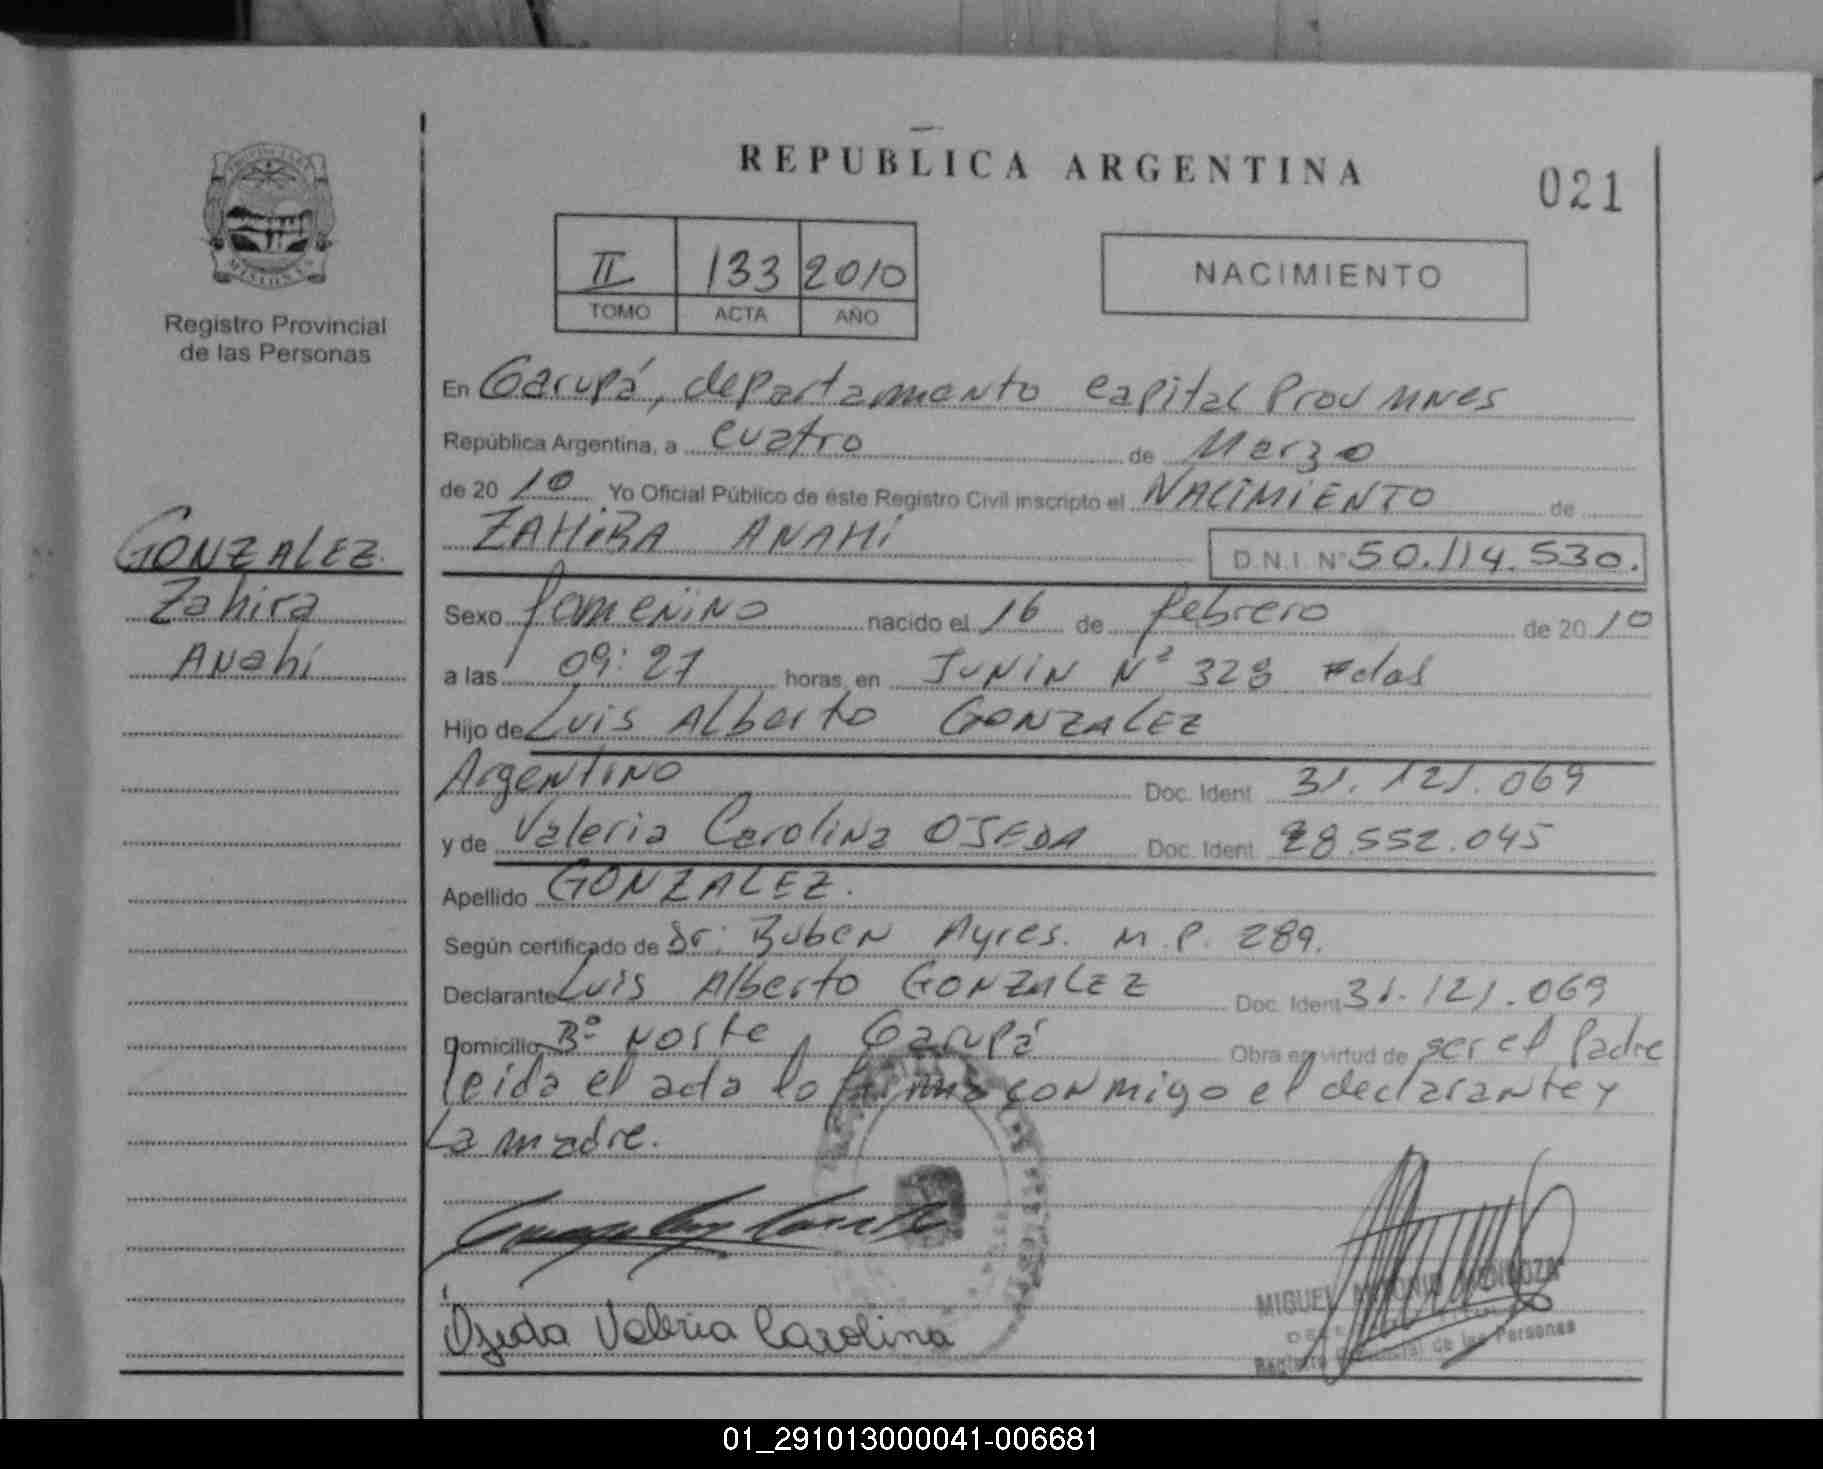 REPUBLICA ARGENTINA
021
MISIONES
Registro Provincial
de las Personas
II 133 2010
TOMO ACTA AÑO
NACIMIENTO
En Garupá, departamento capital Prov Mnes
República Argentina, a cuatro de Marzo
de 2010 Yo Oficial Público de éste Registro Civil inscripto el NACIMIENTO de
ZAHIRA ANAHI D.N.I. Nº 50.114.530.
GONZALEZ
Zahira
Anahi
Sexo femenino nacido el 16 de febrero de 2010
a las 09:27 horas, en JUNIN Nº 328 Pdas
Hijo de Luis Alberto GONZALEZ
Argentino Doc. Ident 31.121.069
y de Valeria Carolina OJEDA Doc. Ident. 28.552.045
Apellido GONZALEZ.
Según certificado de Dr. Ruben Ayres. M.P. 289.
Declarante Luis Alberto GONZALEZ Doc. Ident. 31.121.069
Domicilio Bº Norte, Garupá Obra en virtud de ser el Padre
leida el acta lo firma conmigo el declarante y
La madre.
Ojeda Valeria Carolina
MIGUEL ANTONIO MENDOZA
Registro Provincial de las Personas
01_291013000041-006681